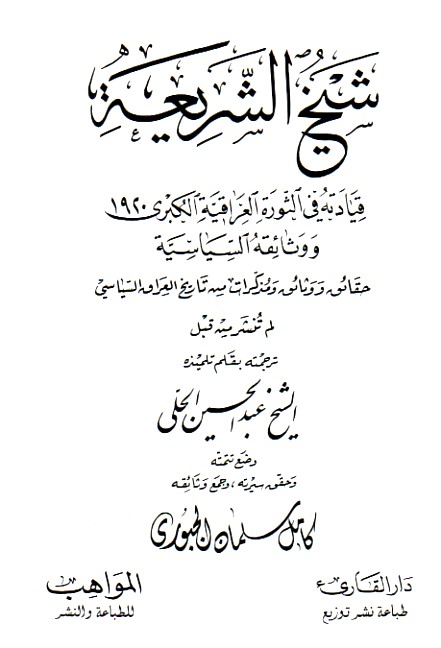 شيخ الشريعة
قيادته في الثورة العراقية الكبرى ١٩٢٠
ووثائقه السياسية
حقائق ووثائق ومذكرات من تاريخ العراق السياسي
لم تنشر من قبل
ترجمته بقلم تلميذه
الشيخ عبد الحسين الحلي
وضع تتمته
وحقق سيرته، وجمع وثائقه
كامل سلمان الجبوري
دار القارئ
طباعة نشر توزيع
المواهب
للطباعة والنشر